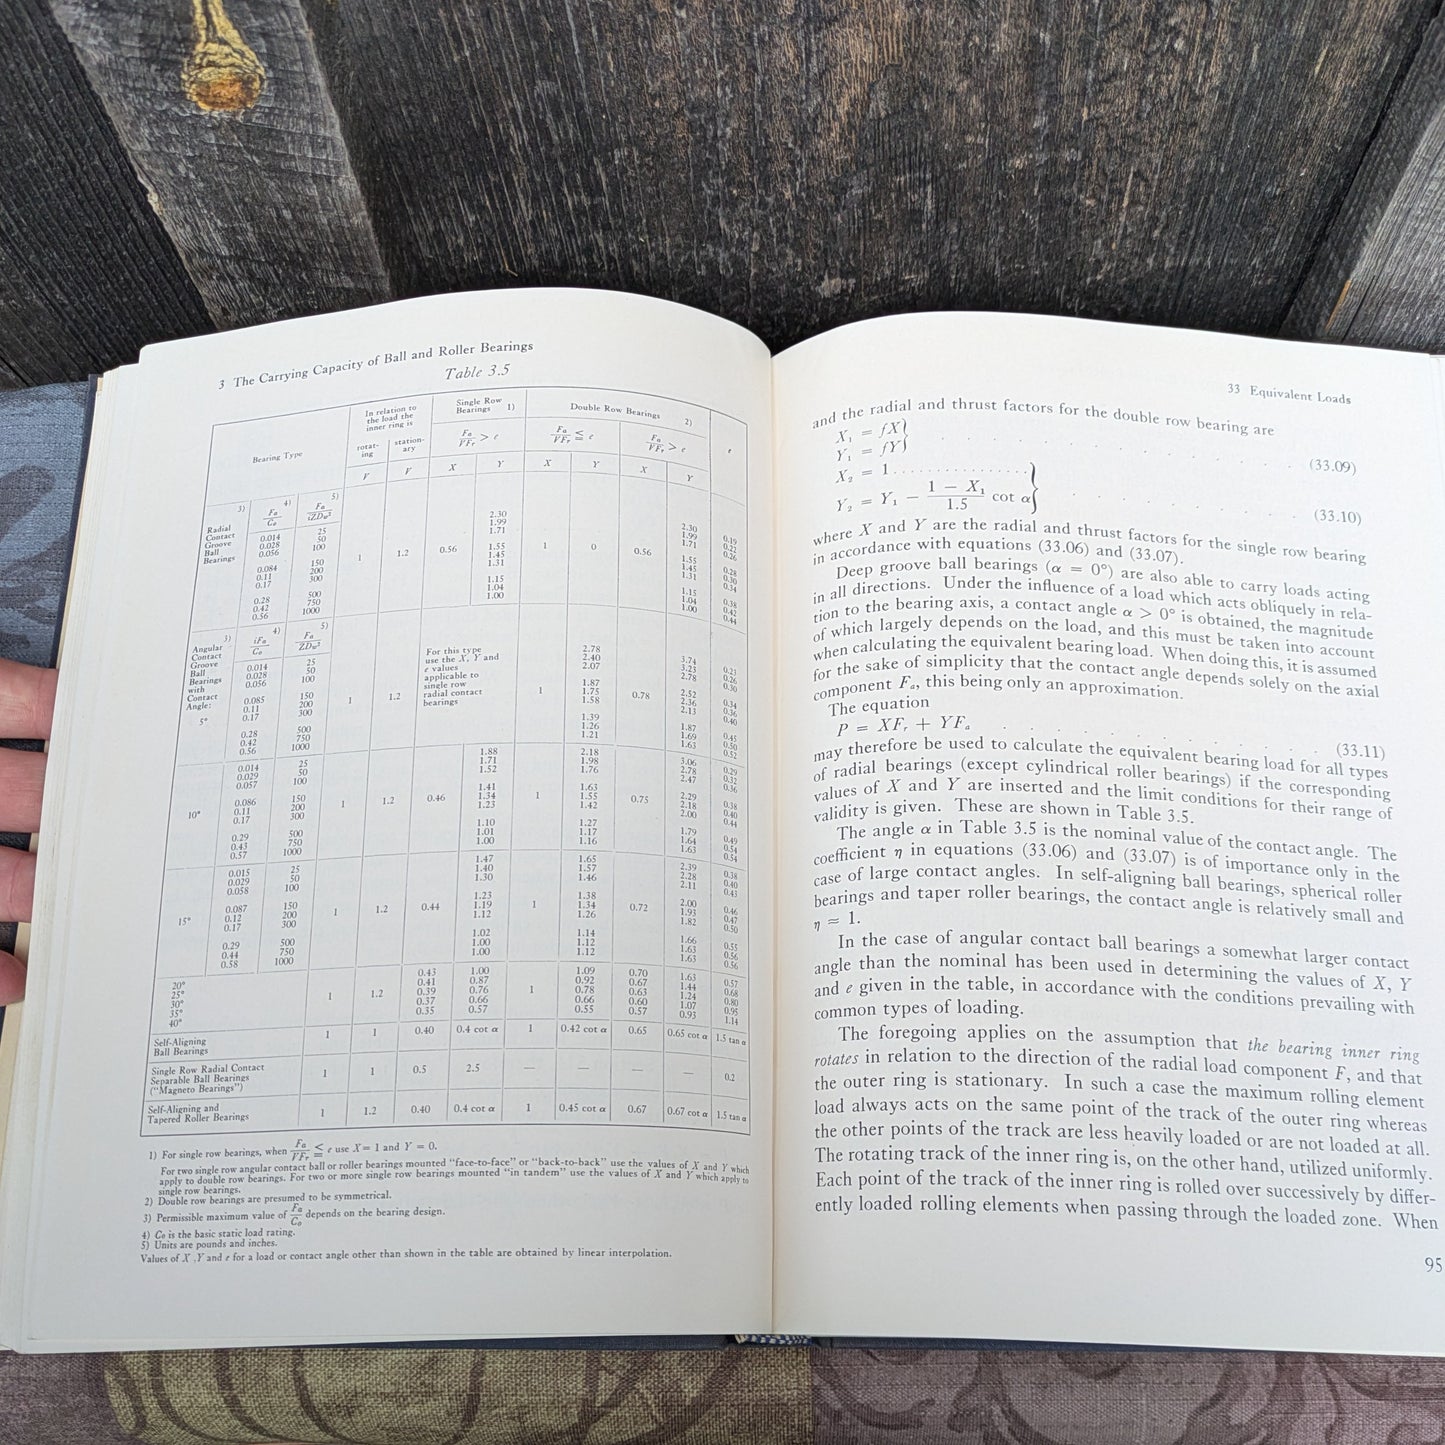 3 The Carrying Capacity of Ball and Roller Bearings
Table 3.5
Bearing Type
In relation to
the load the
inner ring is
Single Row
Bearings 1)
Double Row Bearings 2)
e
rotat-
ing
station-
ary
Fa/VFr > e
Fa/VFr ≦ e
Fa/VFr > e
V V X Y X Y X Y
Radial
Contact
Groove
Ball
Bearings
3) Fa/Co 4) Fa/iZDw² 5)
0.014 25 2.30 2.30 0.19
0.028 50 1.99 1.99 0.22
0.056 100 1.71 1.71 0.26
0.084 150 1.55 1.55 0.28
0.11 200 1 1.2 0.56 1.45 1 0 0.56 1.45 0.30
0.17 300 1.31 1.31 0.34
0.28 500 1.15 1.15 0.38
0.42 750 1.04 1.04 0.42
0.56 1000 1.00 1.00 0.44
Angular
Contact
Groove
Ball
Bearings
with
Contact
Angle:
5°
3) iFa/Co 4) Fa/ZDw² 5)
For this type
use the X, Y and
e values
applicable to
single row
radial contact
bearings
0.014 25 2.78 3.74 0.23
0.028 50 2.40 3.23 0.26
0.056 100 2.07 2.78 0.30
0.085 150 1.87 2.52 0.34
0.11 200 1 1.2 1 1.75 0.78 2.36 0.36
0.17 300 1.58 2.13 0.40
0.28 500 1.39 1.87 0.45
0.42 750 1.26 1.69 0.50
0.56 1000 1.21 1.63 0.52
0.014 25 1.88 2.18 3.06 0.29
0.029 50 1.71 1.98 2.78 0.32
0.057 100 1.52 1.76 2.47 0.36
0.086 150 1.41 1.63 2.29 0.38
10° 0.11 200 1 1.2 0.46 1.34 1 1.55 0.75 2.18 0.40
0.17 300 1.23 1.42 2.00 0.44
0.29 500 1.10 1.27 1.79 0.49
0.43 750 1.01 1.17 1.64 0.54
0.57 1000 1.00 1.16 1.63 0.54
0.015 25 1.47 1.65 2.39 0.38
0.029 50 1.40 1.57 2.28 0.40
0.058 100 1.30 1.46 2.11 0.43
0.087 150 1.23 1.38 2.00 0.46
15° 0.12 200 1 1.2 0.44 1.19 1 1.34 0.72 1.93 0.47
0.17 300 1.12 1.26 1.82 0.50
0.29 500 1.02 1.14 1.66 0.55
0.44 750 1.00 1.12 1.63 0.56
0.58 1000 1.00 1.12 1.63 0.56
20° 0.43 1.00 1.09 0.70 1.63 0.57
25° 0.41 0.87 0.92 0.67 1.44 0.68
30° 1 1.2 0.39 0.76 1 0.78 0.63 1.24 0.80
35° 0.37 0.66 0.66 0.60 1.07 0.95
40° 0.35 0.57 0.55 0.57 0.93 1.14
Self-Aligning
Ball Bearings
1 1 0.40 0.4 cot α 1 0.42 cot α 0.65 0.65 cot α 1.5 tan α
Single Row Radial Contact
Separable Ball Bearings
("Magneto Bearings")
1 1 0.5 2.5 — — — — 0.2
Self-Aligning and
Tapered Roller Bearings
1 1.2 0.40 0.4 cot α 1 0.45 cot α 0.67 0.67 cot α 1.5 tan α
1) For single row bearings, when Fa/VFr ≦ e use X = 1 and Y = 0.
For two single row angular contact ball or roller bearings mounted "face-to-face" or "back-to-back" use the values of X and Y which
apply to double row bearings. For two or more single row bearings mounted "in tandem" use the values of X and Y which apply to
single row bearings.
2) Double row bearings are presumed to be symmetrical.
3) Permissible maximum value of Fa/Co depends on the bearing design.
4) Co is the basic static load rating.
5) Units are pounds and inches.
Values of X ,Y and e for a load or contact angle other than shown in the table are obtained by linear interpolation.
33 Equivalent Loads
and the radial and thrust factors for the double row bearing are
X₁ = fX
Y₁ = fY} . . . . . . . . . . (33.09)
X₂ = 1 . . . . . . . . . . . . . . . .
Y₂ = Y₁ − (1 − X₁)/1.5 cot α} . . . . . . . (33.10)
where X and Y are the radial and thrust factors for the single row bearing
in accordance with equations (33.06) and (33.07).
Deep groove ball bearings (α = 0°) are also able to carry loads acting
in all directions. Under the influence of a load which acts obliquely in rela-
tion to the bearing axis, a contact angle α > 0° is obtained, the magnitude
of which largely depends on the load, and this must be taken into account
when calculating the equivalent bearing load. When doing this, it is assumed
for the sake of simplicity that the contact angle depends solely on the axial
component Fa, this being only an approximation.
The equation
P = XFr + YFa . . . . . . . . . . (33.11)
may therefore be used to calculate the equivalent bearing load for all types
of radial bearings (except cylindrical roller bearings) if the corresponding
values of X and Y are inserted and the limit conditions for their range of
validity is given. These are shown in Table 3.5.
The angle α in Table 3.5 is the nominal value of the contact angle. The
coefficient η in equations (33.06) and (33.07) is of importance only in the
case of large contact angles. In self-aligning ball bearings, spherical roller
bearings and taper roller bearings, the contact angle is relatively small and
η ≈ 1.
In the case of angular contact ball bearings a somewhat larger contact
angle than the nominal has been used in determining the values of X, Y
and e given in the table, in accordance with the conditions prevailing with
common types of loading.
The foregoing applies on the assumption that the bearing inner ring
rotates in relation to the direction of the radial load component Fr and that
the outer ring is stationary. In such a case the maximum rolling element
load always acts on the same point of the track of the outer ring whereas
the other points of the track are less heavily loaded or are not loaded at all.
The rotating track of the inner ring is, on the other hand, utilized uniformly.
Each point of the track of the inner ring is rolled over successively by differ-
ently loaded rolling elements when passing through the loaded zone. When
95